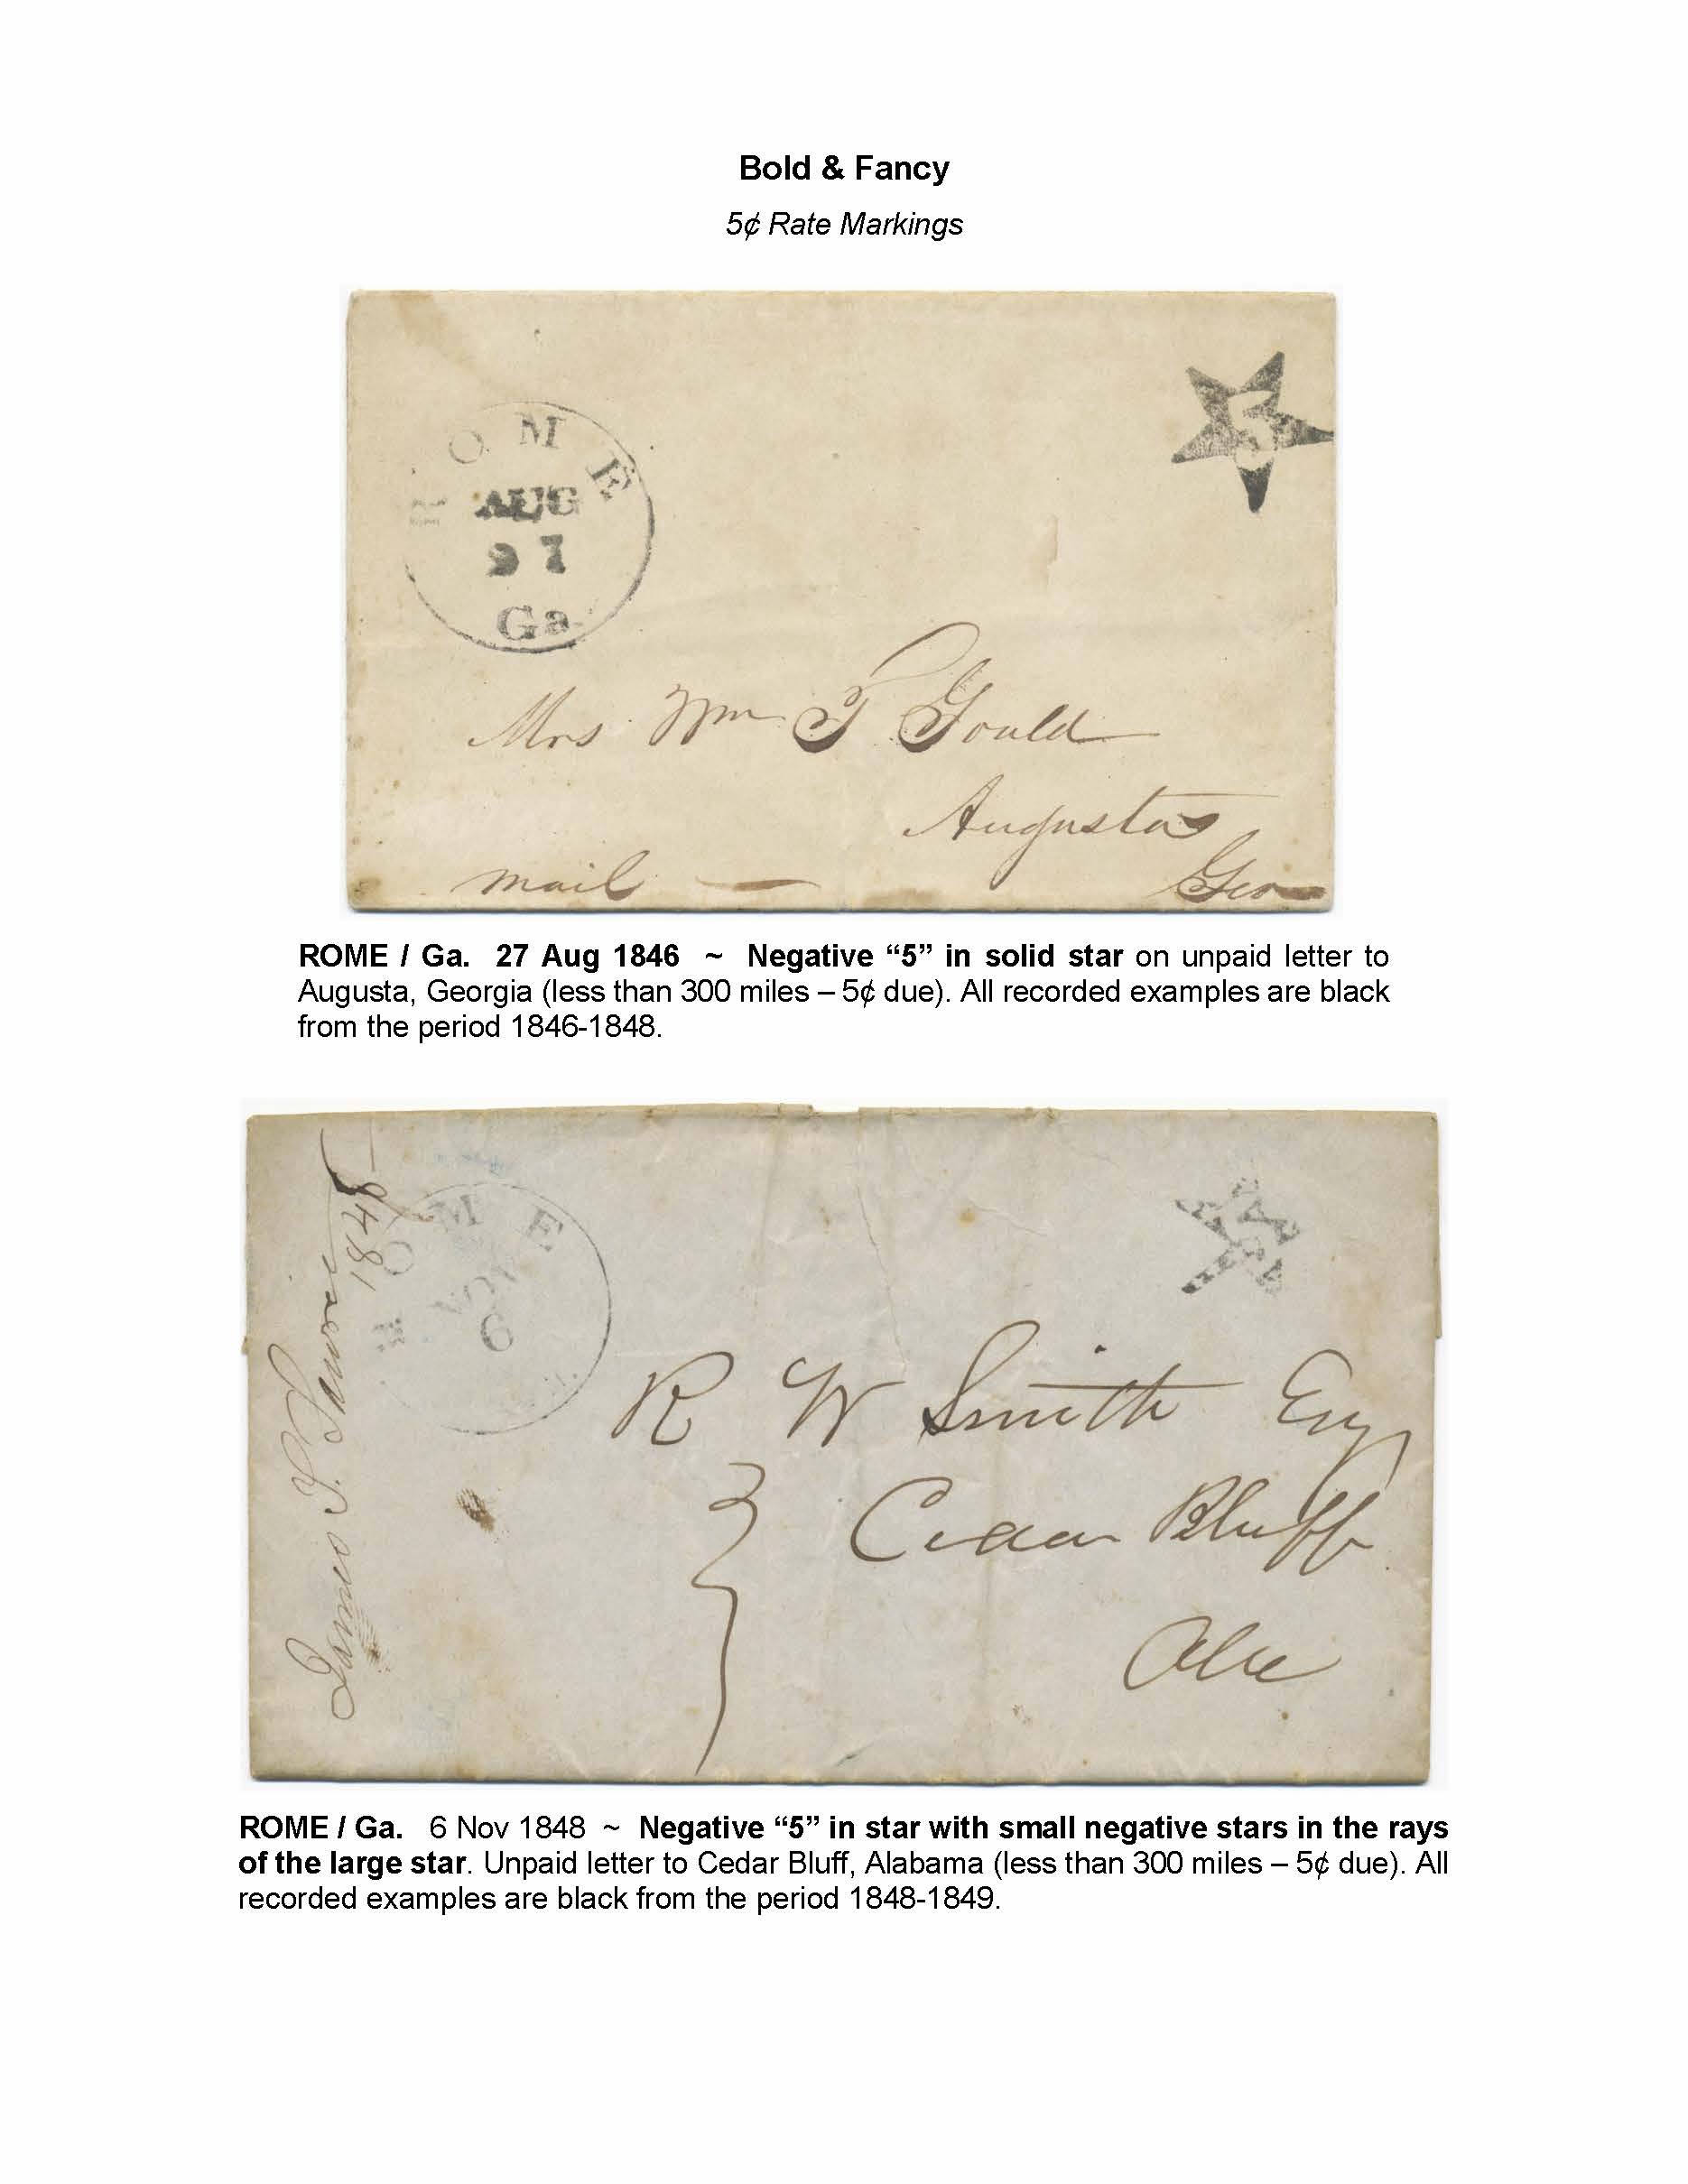 Bold & Fancy
5¢ Rate Markings
ROME
AUG
27
Ga
5
Mrs Wm T Gould
Augusta
mail — Geo
ROME / Ga. 27 Aug 1846 ~ Negative “5” in solid star on unpaid letter to
Augusta, Georgia (less than 300 miles – 5¢ due). All recorded examples are black
from the period 1846-1848.
1848
ROME
NOV
6
R W Smith Esq
Cedar Bluff
Ala
James
ROME / Ga. 6 Nov 1848 ~ Negative “5” in star with small negative stars in the rays
of the large star. Unpaid letter to Cedar Bluff, Alabama (less than 300 miles – 5¢ due). All
recorded examples are black from the period 1848-1849.